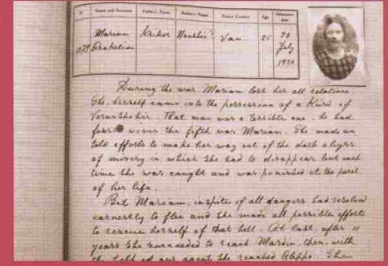 Mariam Krikor Nourlie Van 25 30
1079 July
1926
During the war Mariam lost her all relations.
She, herself came into the possession of a Kurd of
. That man was a terrible one, he had
four wives the fifth was Mariam. She made un
told efforts to make her way out of the dark abyss
of misery in which she had to disappear but each
time she was caught and was punished at the peril
of her life.
But Mariam, inspite of all dangers had resolved
earnestly to flee and she made all possible efforts
to rescue herself of that hell. At last, after 11
years she succeeded to reach Mardin, then, with
the help of our agent she reached Aleppo. She